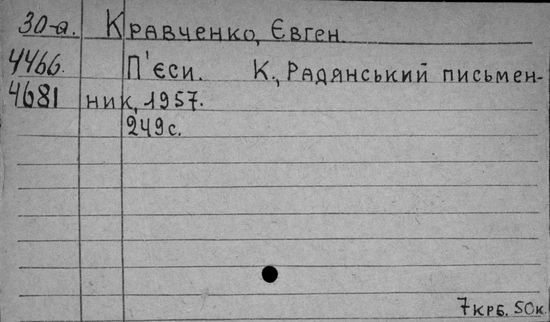 30-а. Кравченко, Євген
4466. П'єси. К., Радянський письмен-
4681 ник, 1957.
249 с.
7 крб. 50 к.